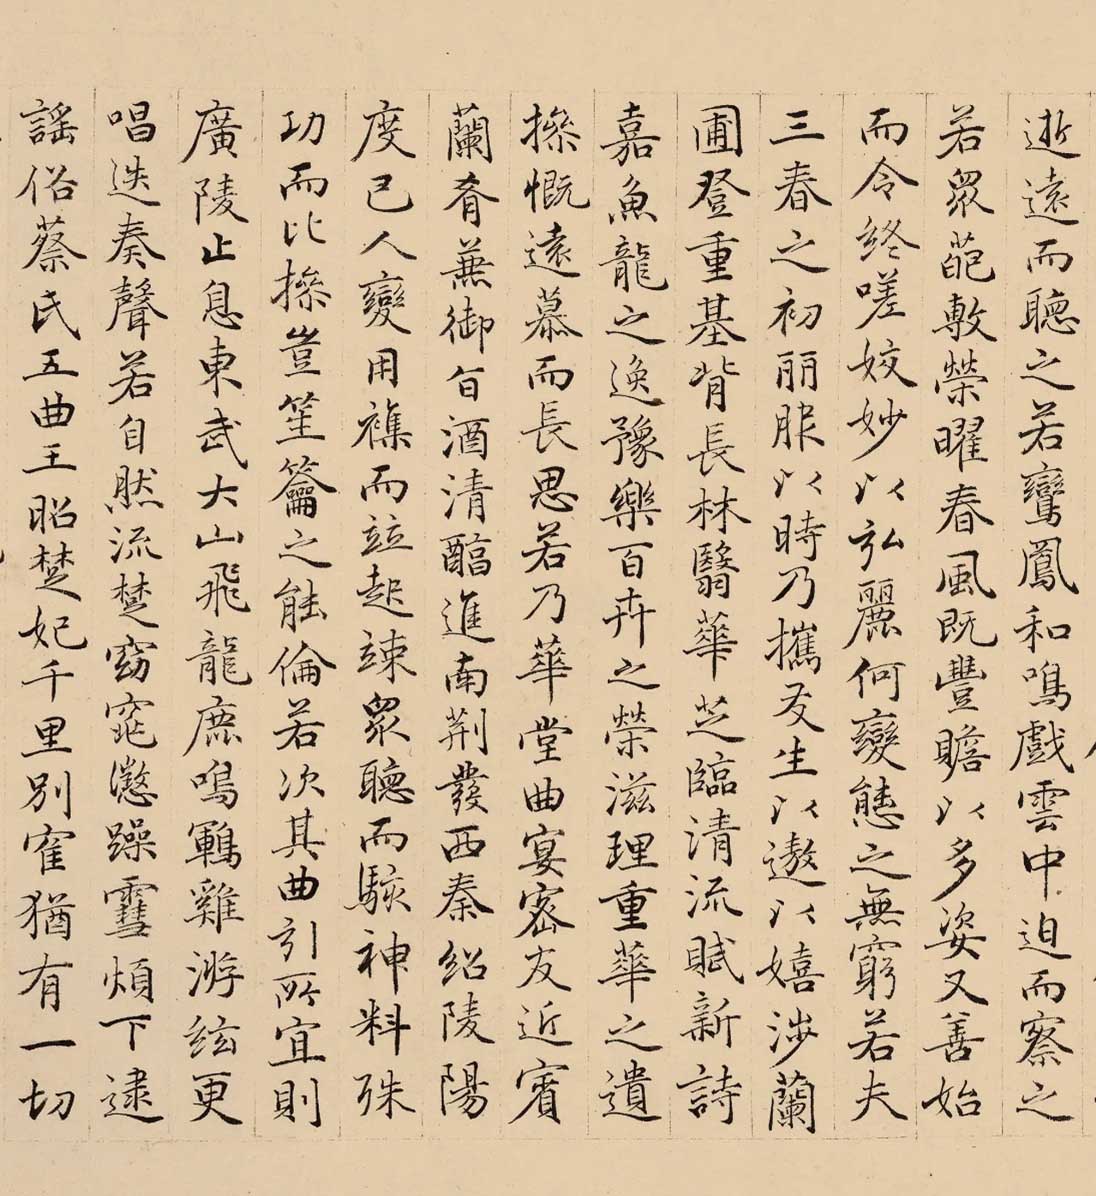 逝遠而聽之若鸞鳳和鳴戲雲中迫而察之
若眾葩敷榮曜春風既豐贍以多姿又善始
而令終嗟姣妙以弘麗何變態之無窮若夫
三春之初丽服以時乃攜友生以遨以嬉涉蘭
圃登重基背長林翳華芝臨清流賦新詩
嘉魚龍之逸豫樂百卉之榮滋理重華之遺
操慨遠慕而長思若乃華堂曲宴密友近賓
蘭肴兼御旨酒清醽進南荆發西秦紹陵陽
度巴人變用雜而竝起竦眾聽而駭神料殊
功而比操豈笙籥之能倫若次其曲引所宜則
廣陵止息東武大山飛龍鹿鳴鵾雞游絃更
唱迭奏聲若自然流楚窈窕懲躁雪煩下逮
謠俗蔡氏五曲王昭楚妃千里別寉猶有一切